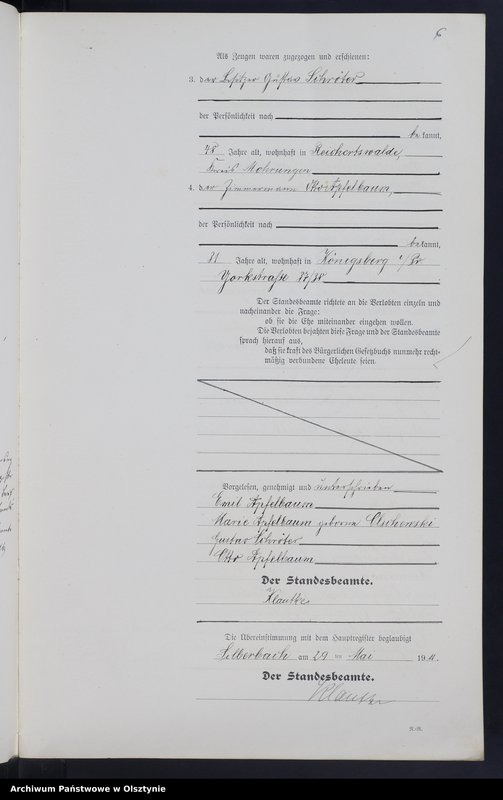 6
Als Zeugen waren zugezogen und erschienen:
3. der Besitzer Gustav Schröter
der Persönlichkeit nach
bekannt,
48 Jahre alt, wohnhaft in Reichertswalde,
Kreis Mohrungen
4. der Zimmermann Otto Apfelbaum,
der Persönlichkeit nach
bekannt,
21 Jahre alt, wohnhaft in Königsberg i/Pr
Yorkstraße
Der Standesbeamte richtete an die Verlobten einzeln und
nacheinander die Frage:
ob sie die Ehe miteinander eingehen wollen.
Die Verlobten bejahten diese Frage und der Standesbeamte
sprach hierauf aus,
daß sie kraft des Bürgerlichen Gesetzbuchs nunmehr recht-
mäßig verbundene Eheleute seien.
Vorgelesen, genehmigt und unterschrieben
Emil Apfelbaum
Marie Apfelbaum geborene
Gustav Schröter
Otto Apfelbaum
Der Standesbeamte.
Klautke
Die Übereinstimmung mit dem Hauptregister beglaubigt
Silberbach am 29 ten Mai 191
Der Standesbeamte.
Klautke
Archiwum Państwowe w Olsztynie